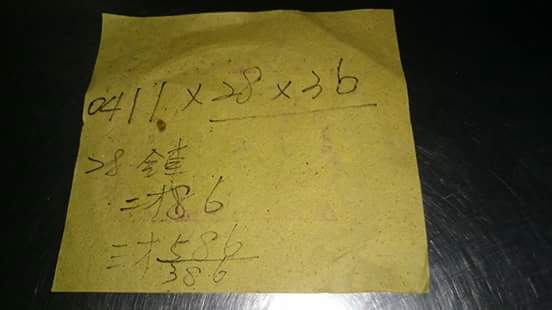 0411×28×36
28 金重
二才86
三才586
386